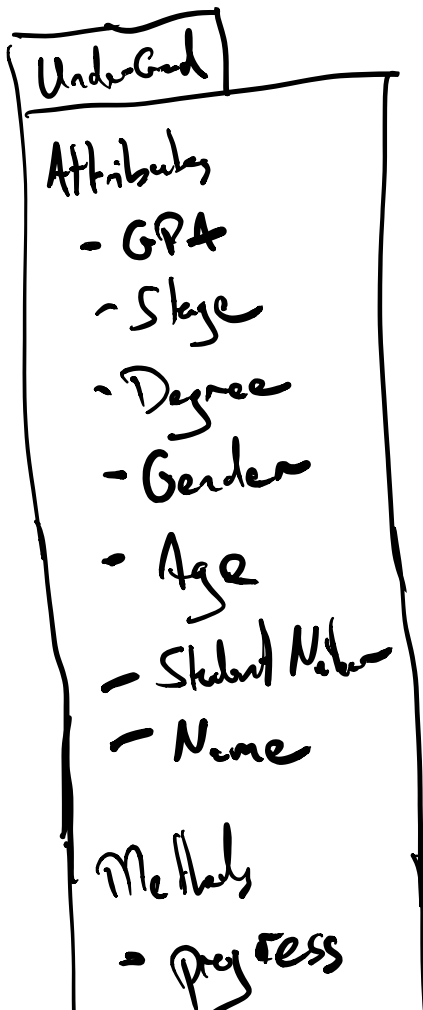 UnderGrad
Attributes
- GPA
- Stage
- Degree
- Gender
- Age
- Student Number
- Name
Methods
- progress